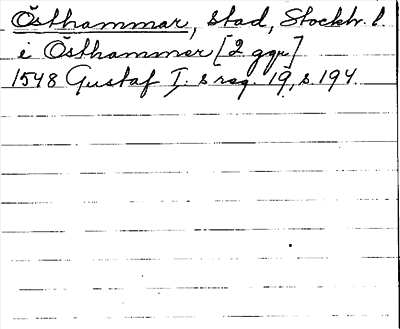 Östhammar, stad, Stockh. l.
i Östhammer [2 ggr]
1548 Gustaf I:s reg. 19, s. 194.